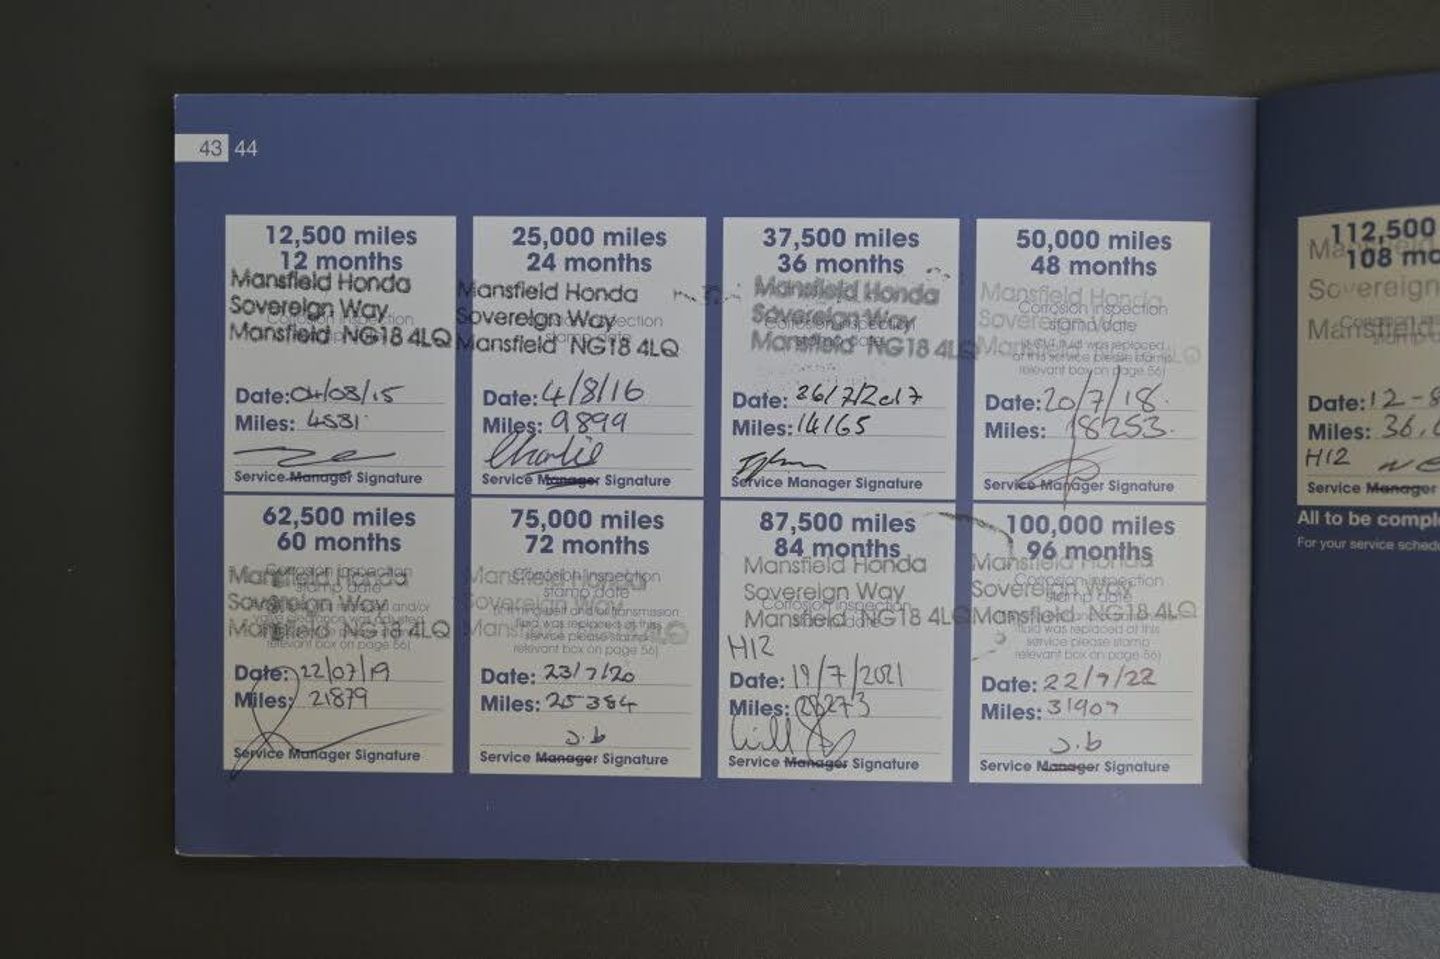 43 44
12,500 miles
12 months
Mansfield Honda
Sovereign Way
Corrosion inspection
Mansfield NG18 4LQ
Date: 04/08/15
Miles: 4531
Service Manager Signature
25,000 miles
24 months
Mansfield Honda
Sovereign Way
Corrosion inspection
stamp date
Mansfield NG18 4LQ
Date: 4/8/16
Miles: 9899
Charlie
Service Manager Signature
37,500 miles
36 months
Mansfield Honda
Sovereign Way
Corrosion inspection
stamp date
Mansfield NG18 4LQ
Date: 26/7/2017
Miles: 14165
Service Manager Signature
50,000 miles
48 months
Mansfield Honda
Corrosion inspection
Sovereign Way
stamp date
was replaced
at this service please stamp
relevant box on page 56)
Date: 20/7/18.
Miles: 18253.
Service Manager Signature
62,500 miles
60 months
Corrosion inspection
Mansfield Honda
stamp date
Sovereign Way
and/or
Mansfield NG18 4LQ
relevant box on page 56)
Date: 22/07/19
Miles: 21879
Service Manager Signature
75,000 miles
72 months
Mansfield Honda
Corrosion inspection
stamp date
Sovereign Way
(If timing belt and/or transmission
fluid was replaced at this
service please stamp
relevant box on page 56)
Date: 23/7/20
Miles: 25384
J.b
Service Manager Signature
87,500 miles
84 months
Mansfield Honda
Sovereign Way
Corrosion inspection
Mansfield NG18 4LQ
H12
Date: 19/7/2021
Miles: 28273
Service Manager Signature
100,000 miles
96 months
Mansfield Honda
Corrosion inspection
Sovereign Way
stamp date
Mansfield NG18 4LQ
fluid was replaced at this
service please stamp
relevant box on page 56)
Date: 22/7/22
Miles: 31907
J.b
Service Manager Signature
112,500
108
Sovereign
Mansfield
Date: 12-8
Miles: 36,
H12
Service Manager
All to be
For your service